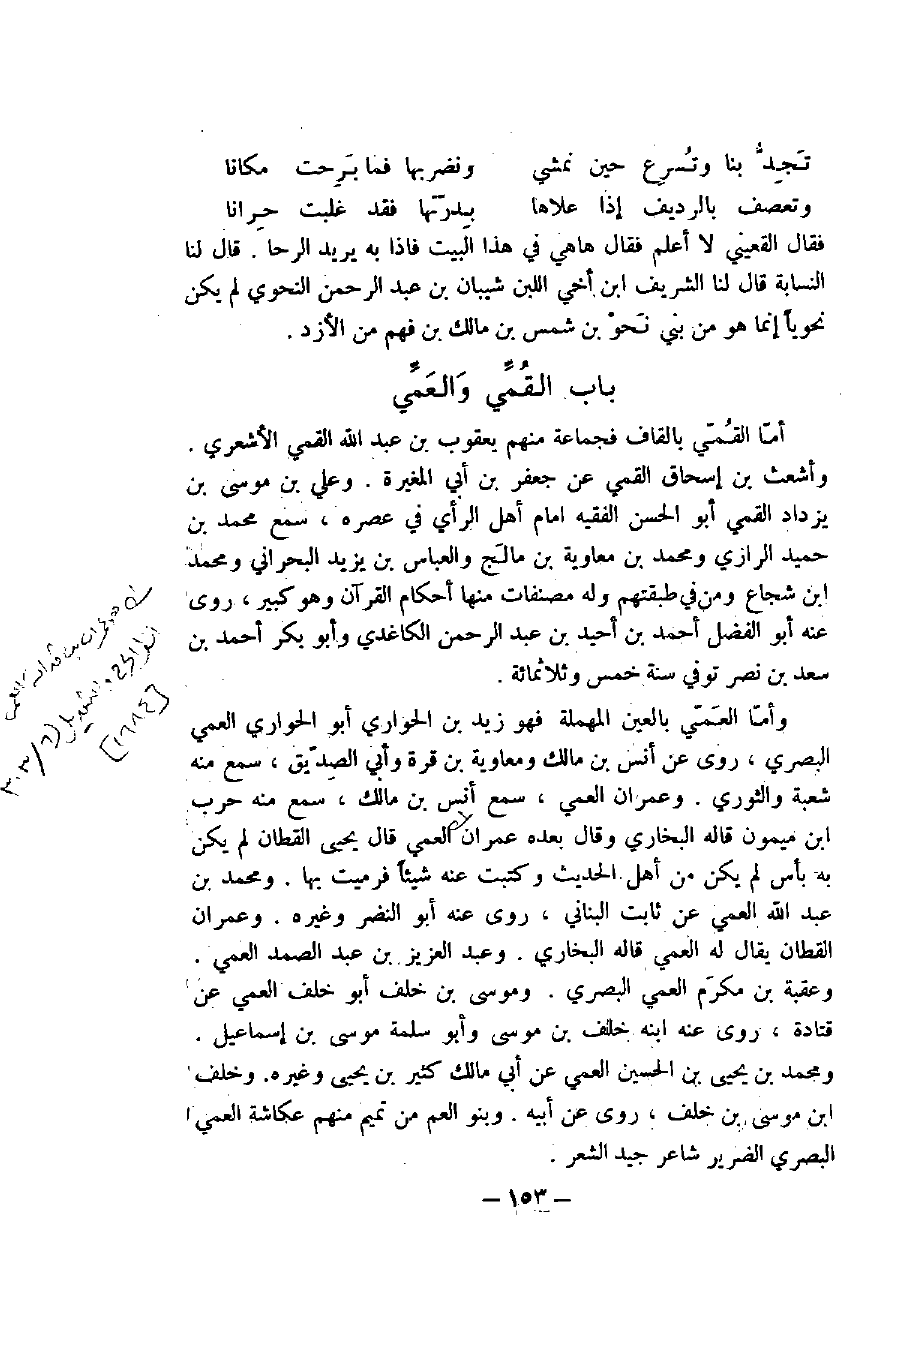 تَجِدُّ بنا وتُسرِع حين نمشي ونضربها فما بَرِحت مكانا
وتعصف بالرديف إذا علاها بِدرّتها فقد غلبت حِرانا
فقال القعيني لا أعلم فقال هاهي في هذا البيت فاذا به يريد الرحا . قال لنا
النسابة قال لنا الشريف ابن أخي اللبن شيبان بن عبد الرحمن النحوي لم يكن
نحوياً إنما هو من بني نَحوْ بن شمس بن مالك بن فهم من الأزد .
باب القُمِّي وَالعَمِّي
أمّا القُمّي بالقاف فجماعة منهم يعقوب بن عبد الله القمي الأشعري .
وأشعث بن إسحاق القمي عن جعفر بن أبي المغيرة . وعلي بن موسى بن
يزداد القمي أبو الحسن الفقيه امام أهل الرأي في عصره ، سمع محمد بن
حميد الرازي ومحمد بن معاوية بن مالَج والعباس بن يزيد البحراني ومحمد
ابن شجاع ومن في طبقتهم وله مصنفات منها أحكام القرآن وهو كبير ، روى
عنه أبو الفضل أحمد بن أحيد بن عبد الرحمن الكاغدي وأبو بكر أحمد بن
سعد بن نصر توفي سنة خمس وثلاثمائة .
وأمّا العَمّي بالعين المهملة فهو زيد بن الحواري أبو الحواري العمي
البصري ، روى عن أنس بن مالك ومعاوية بن قرة وأبي الصدّيق ، سمع منه
شعبة والثوري . وعمران العمي ، سمع أنس بن مالك ، سمع منه حرب
ابن ميمون قاله البخاري وقال بعده عمران العمي قال يحيى القطان لم يكن
به بأس لم يكن من أهل الحديث وكتبت عنه شيئاً فرميت بها . ومحمد بن
عبد الله العمي عن ثابت البناني ، روى عنه أبو النضر وغيره . وعمران
القطان يقال له العمي قاله البخاري . وعبد العزيز بن عبد الصمد العمي .
وعقبة بن مكرَم العمي البصري . وموسى بن خلف أبو خلف العمي عن
قتادة ، روى عنه ابنه خلف بن موسى وأبو سلمة موسى بن إسماعيل .
ومحمد بن يحيى بن الحسين العمي عن أبي مالك كثير بن يحيى وغيره. وخلف
ابن موسى بن خلف ، روى عن أبيه . وبنو العم من تميم منهم عكاشة العمي
البصري الضرير شاعر جيد الشعر .
– ١٥٣ –
عمران بن قدامة العمي
انظر الجرح والتعديل (٦/٣٠٣